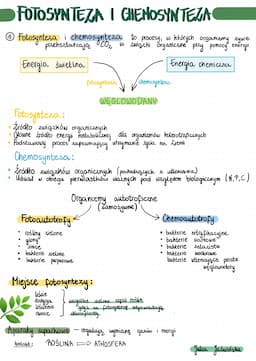 FOTOSYNTEZA I CHEMOSYNTEZA
Fotosynteza i chemosynteza to procesy, w których organizmy żywe
przekształcają CO₂ w związki organiczne przy pomocy energii
Energia świetlna
Energia chemiczna
fotosynteza
chemosynteza
WĘGLOWODANY
Fotosynteza:
• źródło związków organicznych
• główne źródło energii metabolicznej dla organizmów heterotroficznych
• podstawowy proces zapewniający utrzymanie życia na Ziemi
Chemosynteza:
• źródło związków organicznych
• udział w obiegu pierwiastków ważnych pod względem biologicznym (N, P, C)
Organizmy autotroficzne
(samożywne)
Fotoautotrofy
Chemoautotrofy
• rośliny zielone
• glony
• sinice
• bakterie zielone
• bakterie purpurowe
• bakterie nitryfikacyjne
• bakterie siarkowe
• bakterie żelaziste
• bakterie wodorowe
• bakterie utleniające
Miejsce fotosyntezy:
liście
łodyga
owoce
Aparaty szparkowe - regulują wymianę gazów i energii
ROŚLINA ⇨ ATMOSFERA
Julia